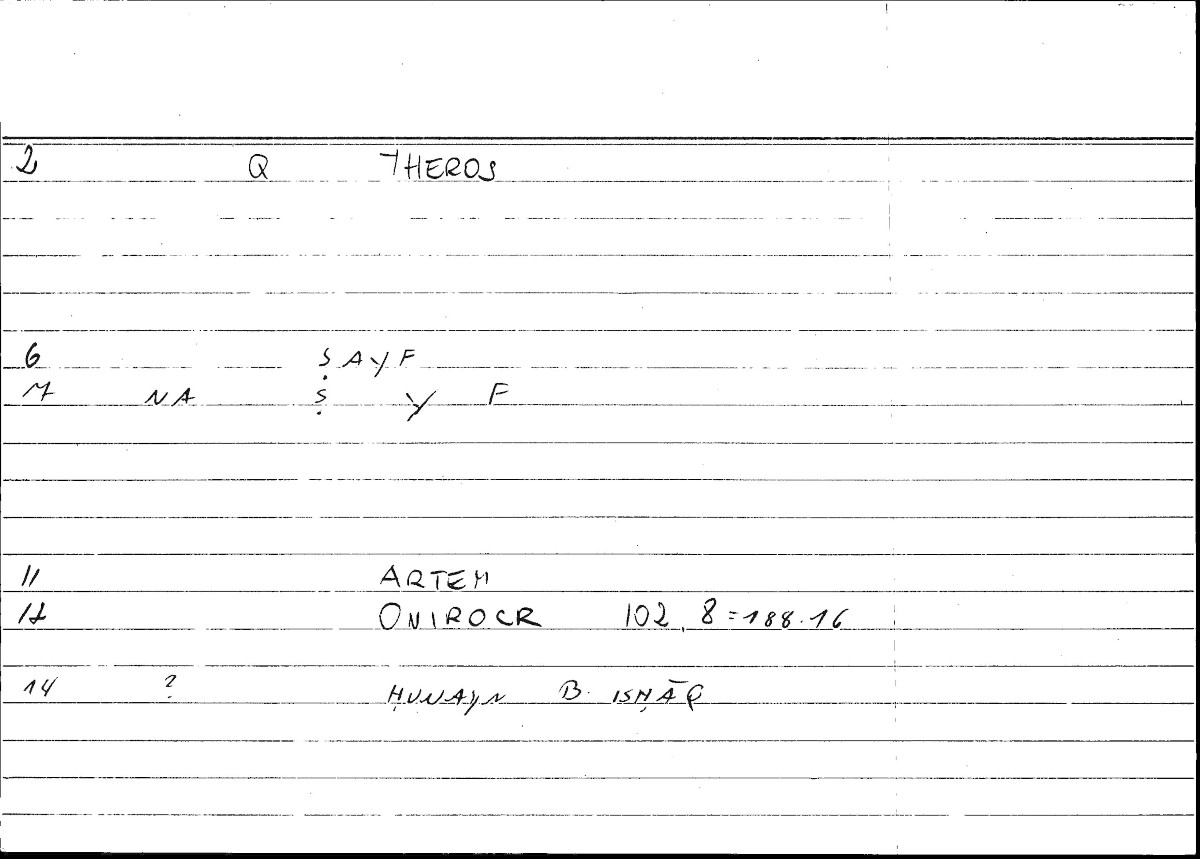 2 Q THEROS
6 ṢAYF
7 NA Ṣ Y F
11 ARTEM
12 ONIROCR 102, 8=188.16
14 ? ḤUNAYN B. ISḤĀQ